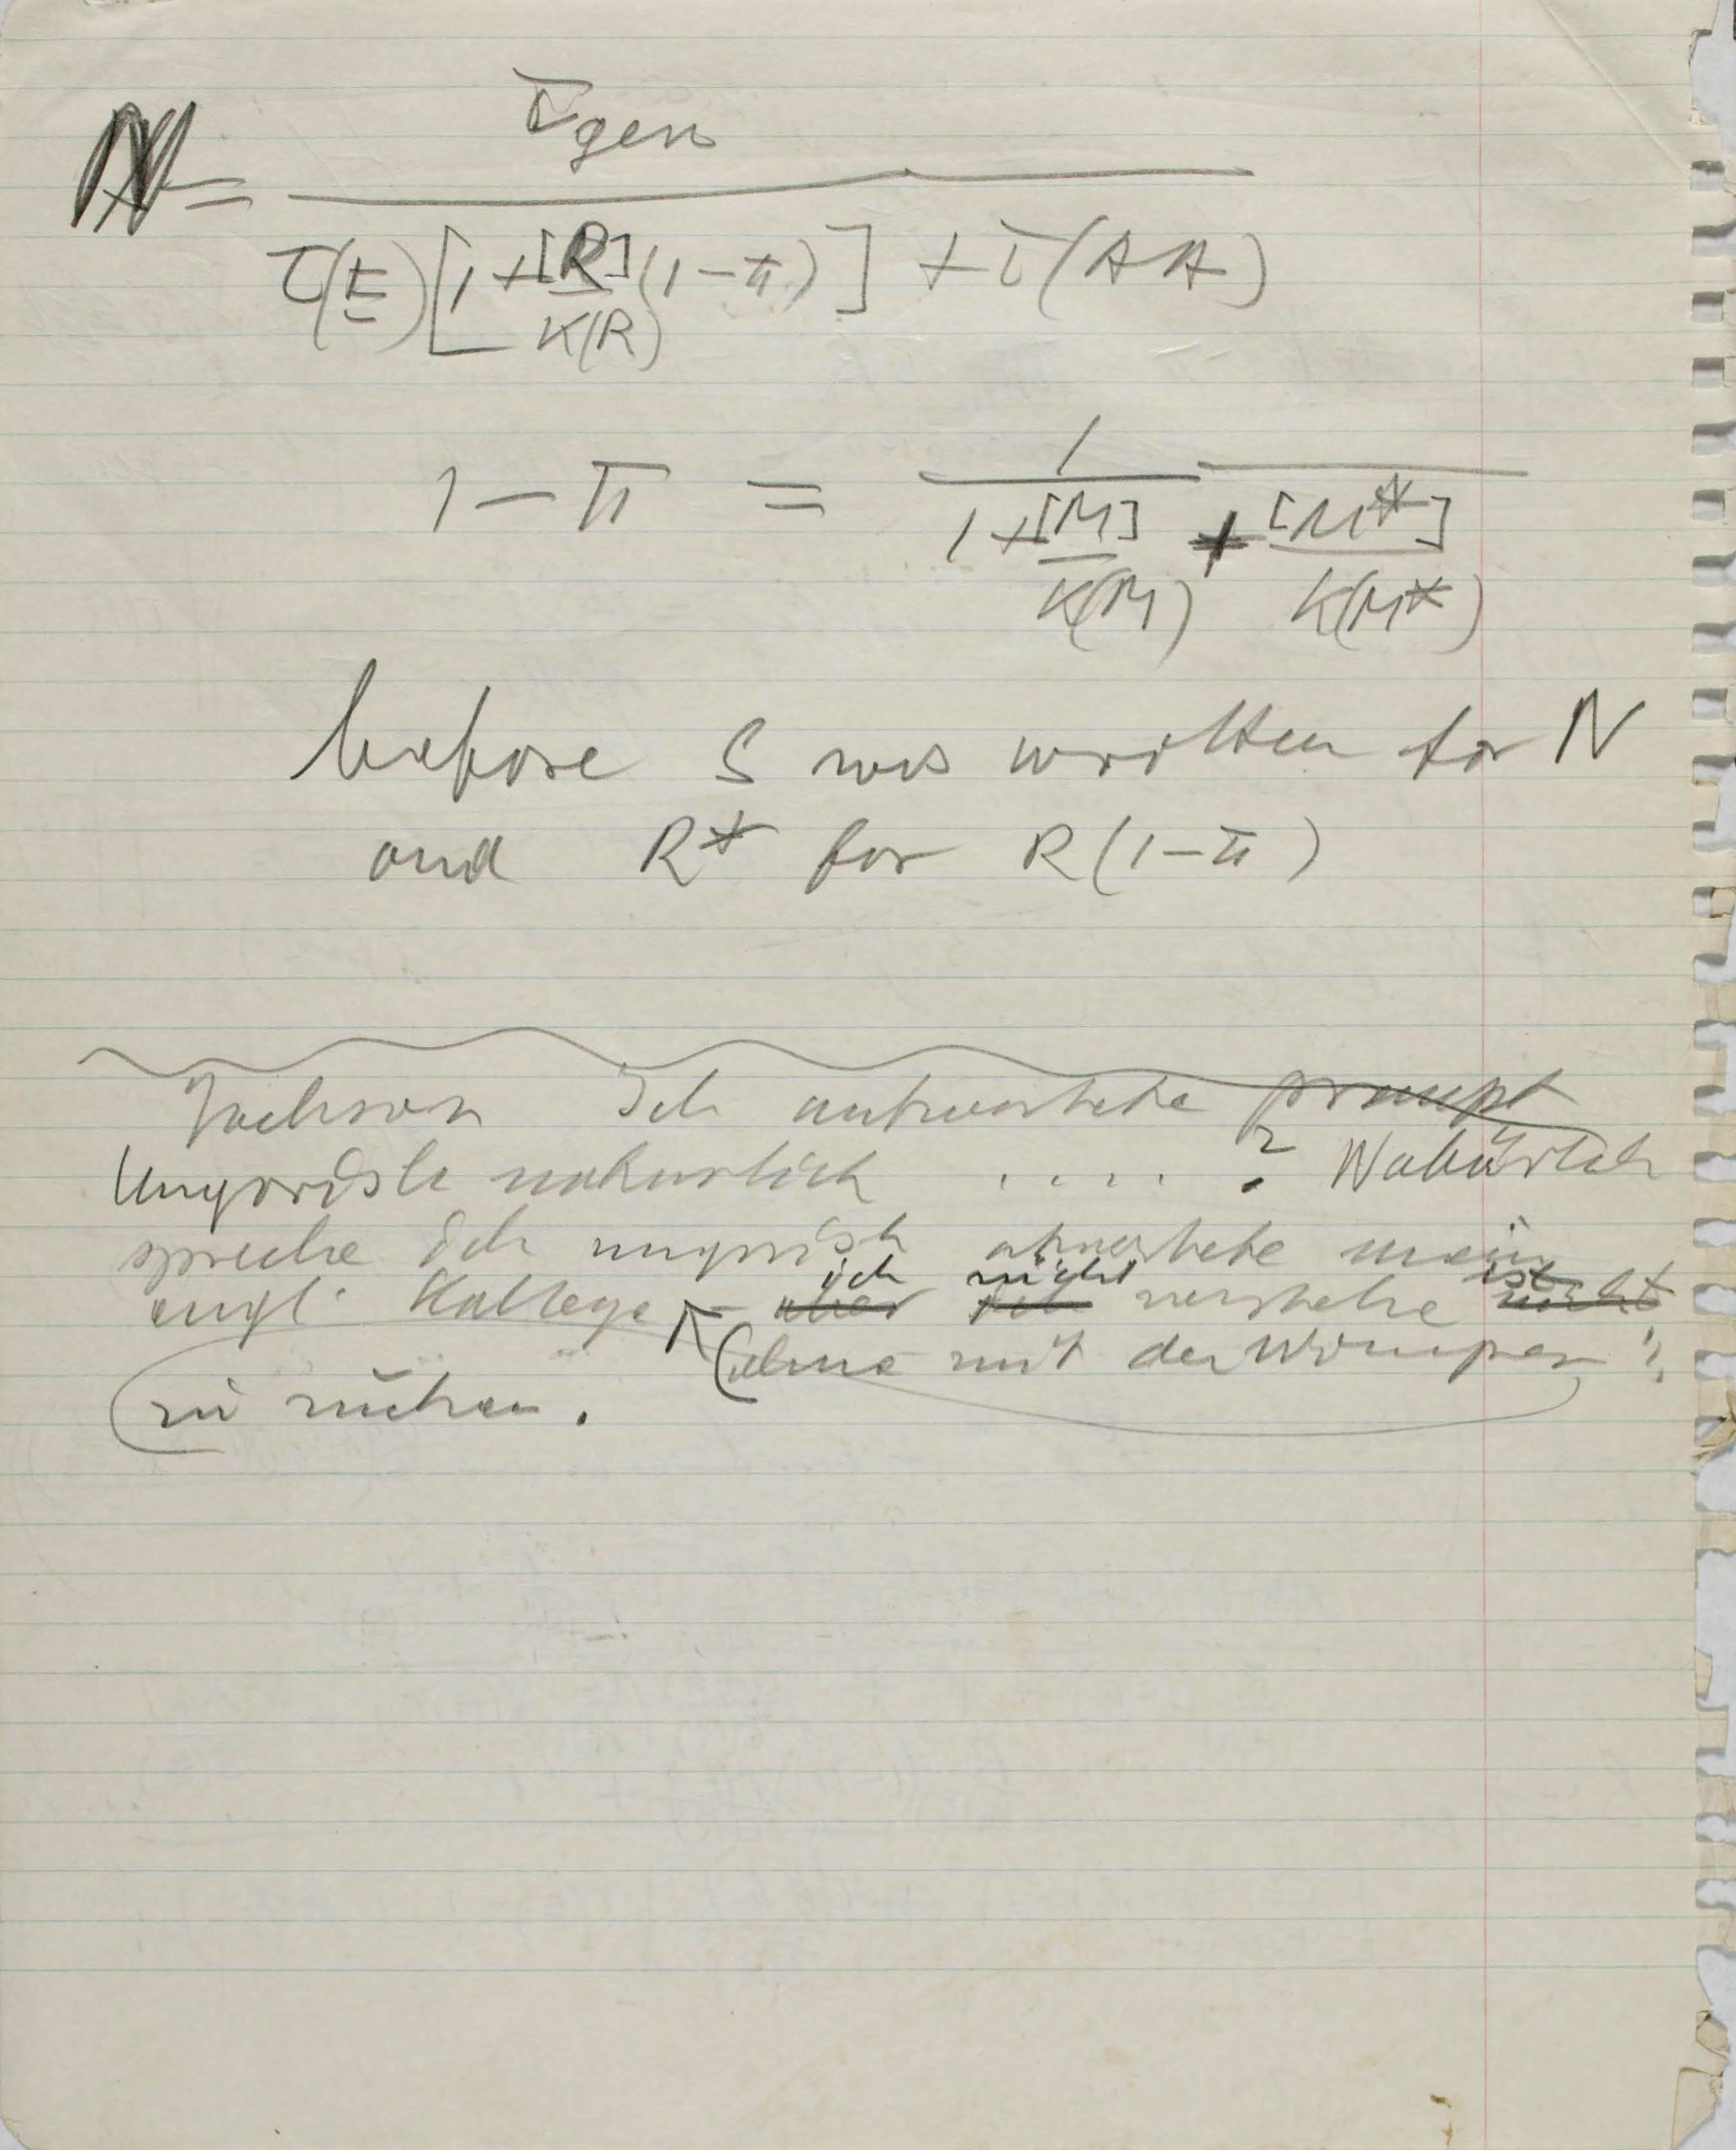 N = τ̄gen / τ(E)[1 + [R]/K(R) (1-π)] + τ(AA)
1 - π = 1 / 1 + [M]/K(M) + [M*]/K(M*)
before S was written for N
and R* for R(1-π)
Ich antwortete prompt
Ungarisch naturlich ..... ? Natürlich
spreche ich ungarisch antwortete mein
engl. Kollege
ich nicht
aber ich verstehe nicht
(ohne mit der Wimper
zu zucken.